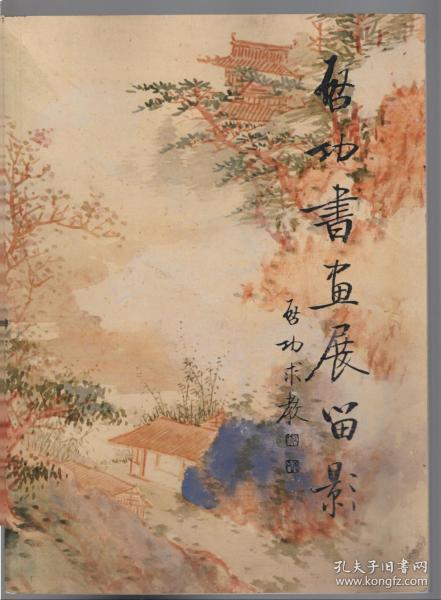 启功書画展留影
启功求教
孔夫子旧书网
www.kongfz.com